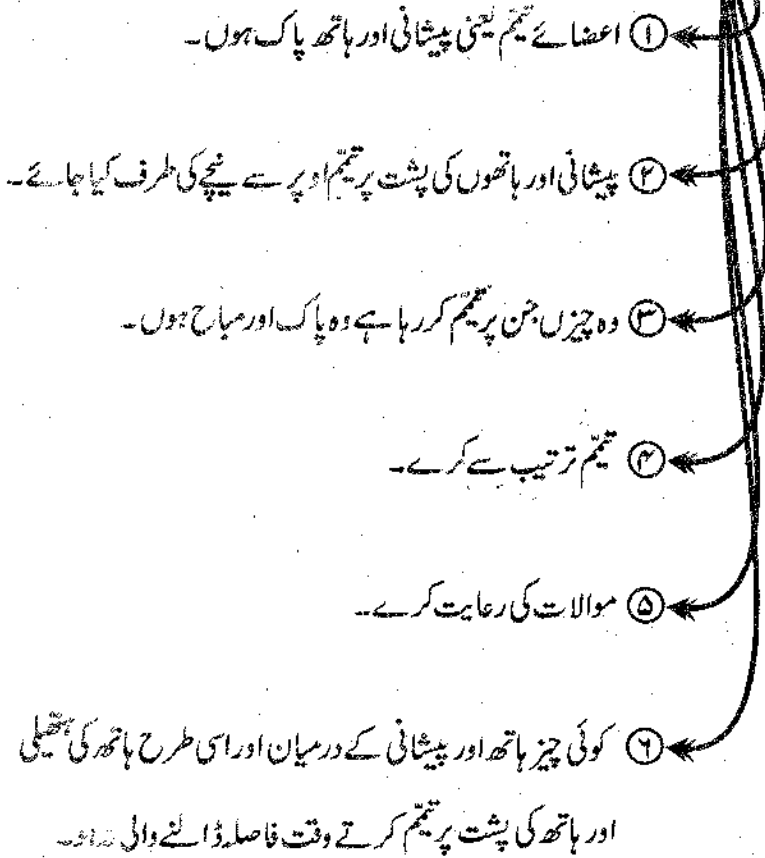 ① اعضائے تیمّم یعنی پیشانی اور ہاتھ پاک ہوں۔
② پیشانی اور ہاتھوں کی پشت پر تیمّم اوپر سے نیچے کی طرف کیا جائے۔
③ وہ چیزں جن پر تیمّم کررہا ہے وہ پاک اور مباح ہوں۔
④ تیمّم ترتیب سے کرے۔
⑤ موالات کی رعایت کرے۔
⑥ کوئی چیز ہاتھ اور پیشانی کے درمیان اور اسی طرح ہاتھ کی ہتھیلی
اور ہاتھ کی پشت پر تیمّم کرتے وقت فاصلہ ڈالنے والی